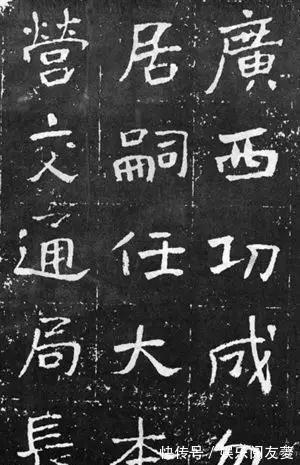 廣西功成
居嗣任大本
營交通局長
快传号 / 娱乐